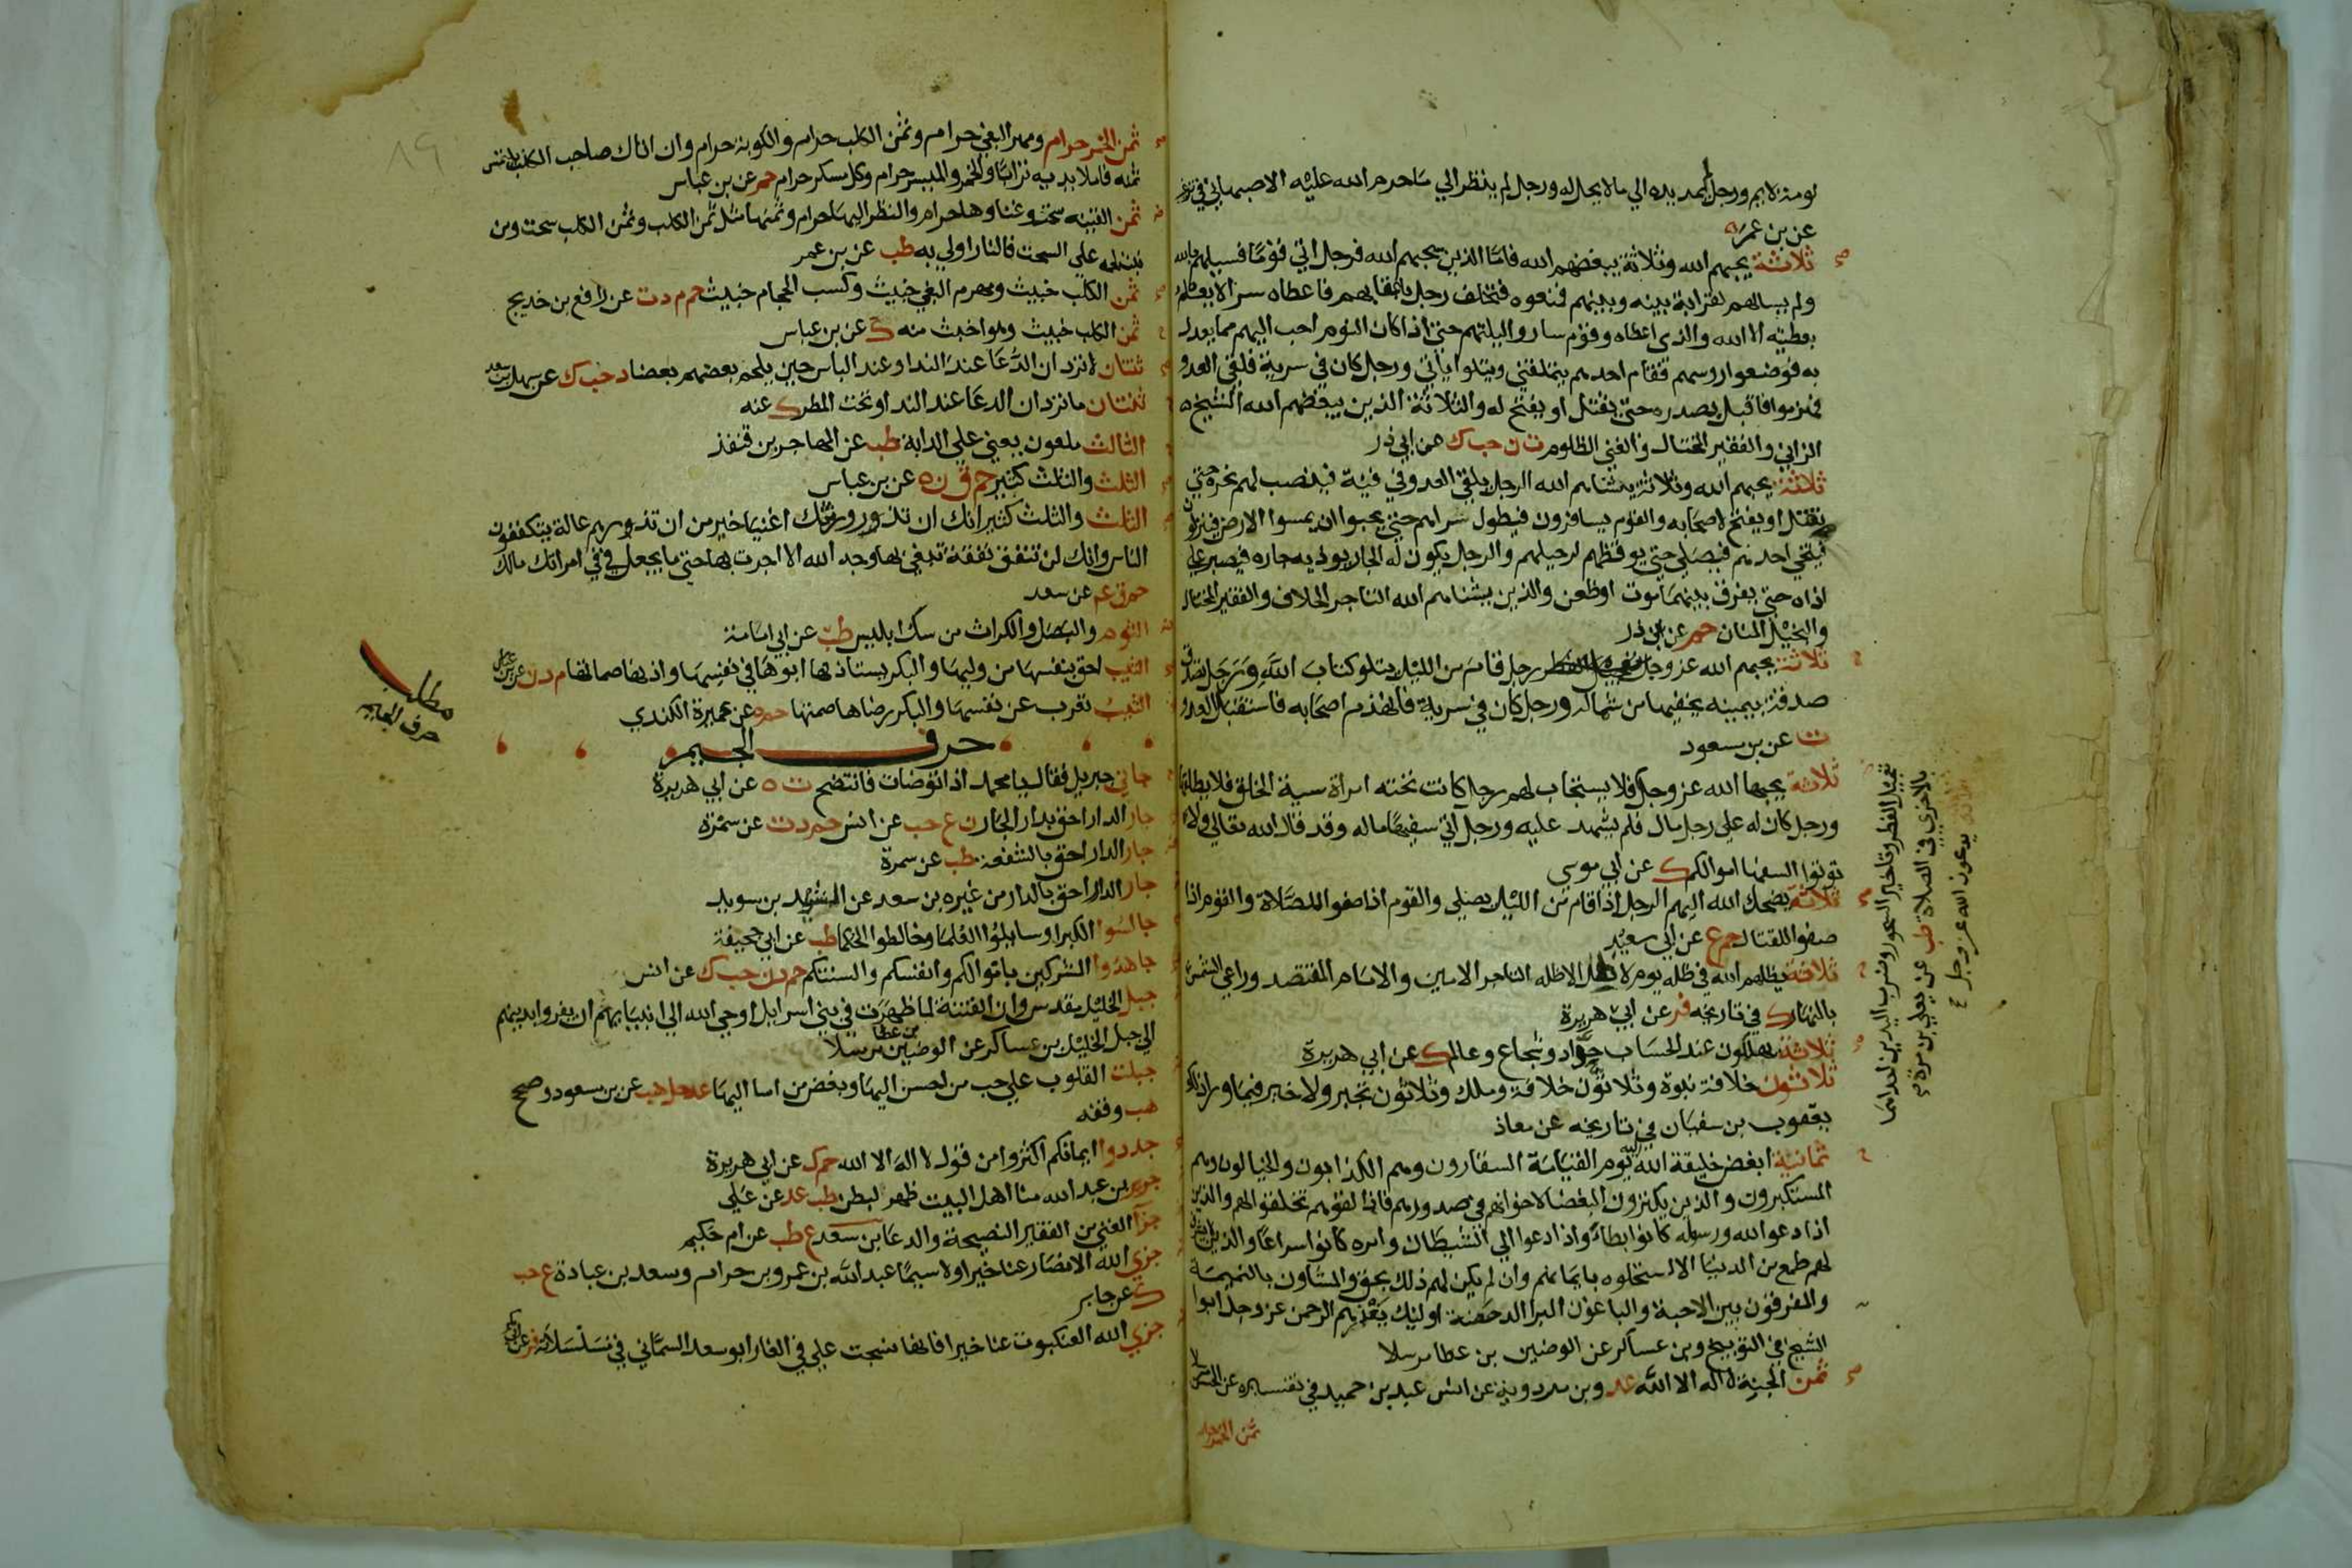 لومة لايم ورجل لم يمد يده الي ما لا يحل له ورجل لم ينظر الي ما حرم الله عليه الاصبهاني في
عن بن عمر
ثلاثة يحبهم الله وثلاثة يبغضهم الله فاما الذين يحبهم الله فرجل اتي قوما فسالهم بالله
ولم يسالهم لقرابة بينه وبينهم فمنعوه فتخلف رجل باعقابهم فاعطاه سرا لا يعلم
بعطيته الا الله والذي اعطاه وقوم ساروا ليلتهم حتي اذا كان النوم احب اليهم مما يعدل
به فوضعوا روسهم فقام احدهم يتملقني ويتلوا اياتي ورجل كان في سرية فلقي العدو
فهزموا فاقبل بصدره حتي يقتل او يفتح له والثلاثة الذين يبغضهم الله الشيخ
الزاني والفقير المختال والغني الظلوم ت ن حب ك عن ابي ذر
ثلاثة يحبهم الله وثلاثة يشناهم الله الرجل يلقي العدو في فية فينصب لهم نحره حتي
يقتل او يفتح لاصحابه والقوم يسافرون فيطول سراهم حتي يحبوا ان يمسوا الارض فينزلون
فيتنحي احدهم فيصلي حتي يوقظهم لرحيلهم والرجل يكون له الجار يوذيه جاره فيصبر علي
اذاه حتي يفرق بينهما موت او ظعن والذين يشناهم الله التاجر الحلاف والفقير المختال
والبخيل المنان حم عن ابي ذر
ثلاثة يحبهم الله عز وجل رجل قام من الليل يتلو كتاب الله ورجل تصدق
صدقة بيمينه يخفيها من شماله ورجل كان في سرية فانهزم اصحابه فاستقبل العدو
ت عن بن مسعود
ثلاثة يحبها الله عز وجل فلا يستجاب لهم رجل كانت تحته امراة سية الخلق فلا يطلقها
ورجل كان له علي رجل مال فلم يشهد عليه ورجل اتي سفيها ماله وقد قال الله تعالي ولا
توتوا السفها اموالكم ك عن ابي موسي
ثلاثة يضحك الله اليهم الرجل اذا قام من الليل يصلي والقوم اذا صفوا للصلاة والقوم اذا
صفوا للقتال حم ع عن ابي سعيد
ثلاثة يظلهم الله في ظله يوم لا ظل الا ظله التاجر الامين والامام المقتصد وراعي الشمس
بالنهار ك في تاريخه فر عن ابي هريرة
ثلاثة يهلكون عند الحساب جواد وشجاع وعالم ك عن ابي هريرة
ثلاثون خلافة نبوة وثلاثون خلافة وملك وثلاثون تجبر ولا خير فيما ورا ذلك
يعقوب بن سفيان في تاريخه عن معاذ
ثمانية ابغض خليقة الله اليه يوم القيامة السقارون وهم الكذابون والخيالون وهم
المستكبرون والذين يكنزون البغضا لاخوانهم في صدورهم فاذا لقوهم تخلقوا لهم والذين
اذا دعوا الله ورسوله كانوا بطاء واذا دعوا الي الشيطان وامره كانوا سراعا والذين لا يشرف
لهم طمع من الدنيا الا استحلوه بايمانهم وان لم يكن لهم ذلك بحق والمشاون بالنميمة
والمفرقون بين الاحبة والباغون البرا الدحضة اوليك يقذرهم الرحمن عز وجل ابوا
الشيخ في التوبيخ وبن عساكر عن الوضين بن عطا مرسلا
ثمن الجنة لا اله الا الله عد وبن مردويه عن انس عبد بن حميد في تفسيره عن الحسن
ثمن الخمر حرام
تعجيل الفطر وتاخير السحور وضرب اليدين احداهما
بالاخري في الصلاة طب عن يعلي بن مرة
ثلاثة يدعون الله عز وجل
ثمن الخمر حرام ومهر البغي حرام وثمن الكلب حرام والكوبة حرام وان اتاك صاحب الكلب يلتمس
ثمنه فاملا يديه ترابا والخمر والميسر حرام وكل مسكر حرام حم عن بن عباس
ثمن القينة سحت وغناوها حرام والنظر اليها حرام وثمنها مثل ثمن الكلب وثمن الكلب سحت ومن
نبت لحمه علي السحت فالنار اولي به طب عن بن عمر
ثمن الكلب خبيث ومهر البغي خبيث وكسب الحجام خبيث حم م د ت عن رافع بن خديج
ثمن الكلب خبيث وهو اخبث منه ك عن بن عباس
ثنتان لا تردان الدعا عند الندا وعند الباس حين يلحم بعضهم بعضا د حب ك عن سهل بن سعد
ثنتان ما تردان الدعا عند الندا وتحت المطر ك عنه
الثالث ملعون يعني علي الدابة طب عن المهاجر بن قنفذ
الثلث والثلث كثير حم ق ن ه عن بن عباس
الثلث والثلث كثير انك ان تذر ورثتك اغنيا خير من ان تذرهم عالة يتكففون
الناس وانك لن تنفق نفقة تبتغي بها وجه الله الا اجرت بها حتي ما تجعل في في امراتك مالك
حم ق عم عن سعد
الثوم والبصل والكراث من سك ابليس طب عن ابي امامة
الثيب احق بنفسها من وليها والبكر يستاذنها ابوها في نفسها واذنها صماتها م د ن عن بن عباس
الثيب تعرب عن نفسها والبكر رضاها صمتها حم ه عن عميرة الكندي
حرف الجيم
جاني جبريل فقال يا محمد اذا توضات فانتضح ت ه عن ابي هريرة
جار الدار احق بدار الجار ن ع حب عن انس حم د ت عن سمرة
جار الدار احق بالشفعة طب عن سمرة
جار الدار احق بالدار من غيره بن سعد عن الشريد بن سويد
جالسوا الكبرا وسايلوا العلما وخالطوا الحكما طب عن ابي جحيفة
جاهدوا المشركين باموالكم وانفسكم والسنتكم حم د ن حب ك عن انس
جبل الخليل مقدس وان الفتنة لما ظهرت في بني اسرايل اوحي الله الي انبيايهم ان يفروا بدينهم
الي جبل الخليل بن عساكر عن الوضين بن عطا مرسلا
جبلت القلوب علي حب من احسن اليها وبغض من اسا اليها عد حل هب عن بن مسعود وصحح
هب وقفه
جددوا ايمانكم اكثروا من قول لا اله الا الله حم ك عن ابي هريرة
جرير بن عبد الله منا اهل البيت ظهر لبطن طب عد عن علي
جزآ الغني من الفقير النصيحة والدعا بن سعد ع طب عن ام حكيم
جزي الله الانصار عنا خيرا ولا سيما عبد الله بن عمرو بن حرام وسعد بن عبادة ع حب
ك عن جابر
جزي الله العنكبوت عنا خيرا فانها نسجت علي في الغار ابو سعد السماني في مسلسلاته فر عن ابي بكر
مطلب
حرف الجيم